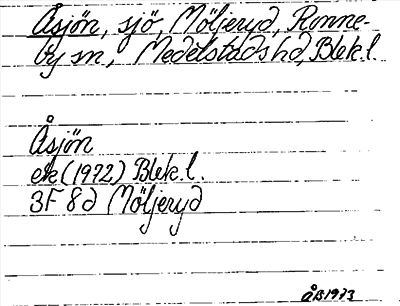 Åsjön, sjö, Möljeryd, Ronne-
by sn, Medelstads hd, Blek.l.
Åsjön
ek (1972) Blek.l.
3F 8d Möljeryd
ÅB 1973